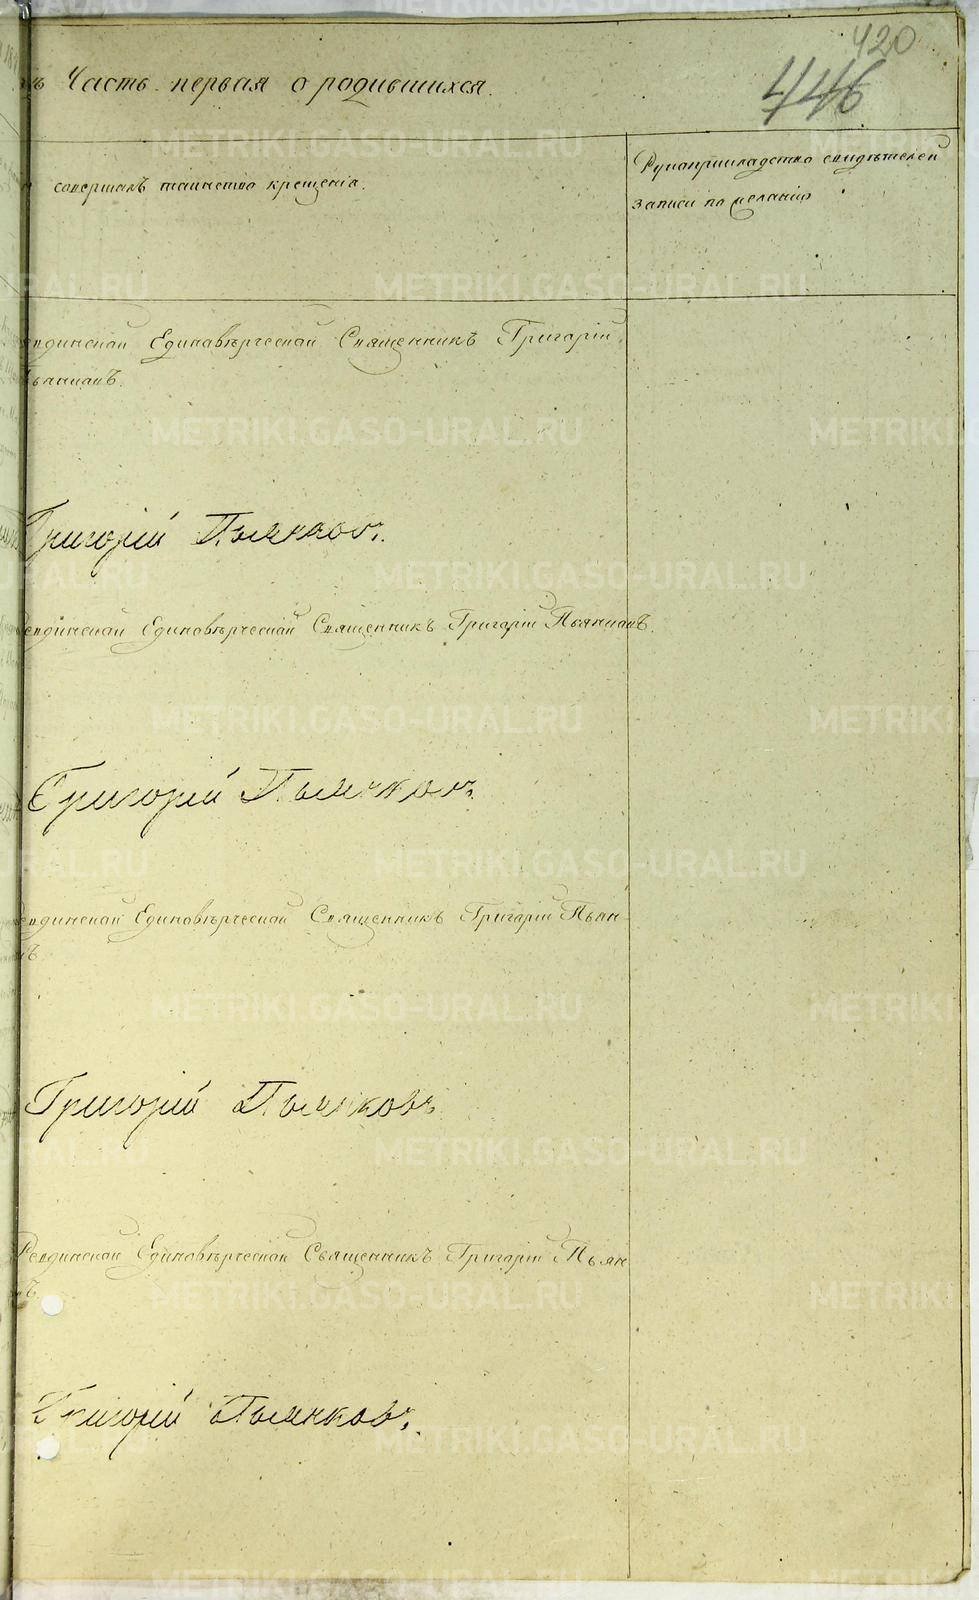 420
446
Часть первая о родившихся.
совершалъ таинство крещенія.
Рукоприкладство свидѣтелей
записи по желанію
Единовѣрческой Священникъ Григорій
Григорій Пьянковъ.
Единовѣрческой Священникъ Григорій Пьянковъ.
Григорій Пьянковъ.
Единовѣрческой Священникъ Григорій Пьян-
Григорій Пьянковъ
Ревдинской Единовѣрческой Священникъ Григорій Пьян
Григорій Пьянковъ.
METRIKI.GASO-URAL.RU